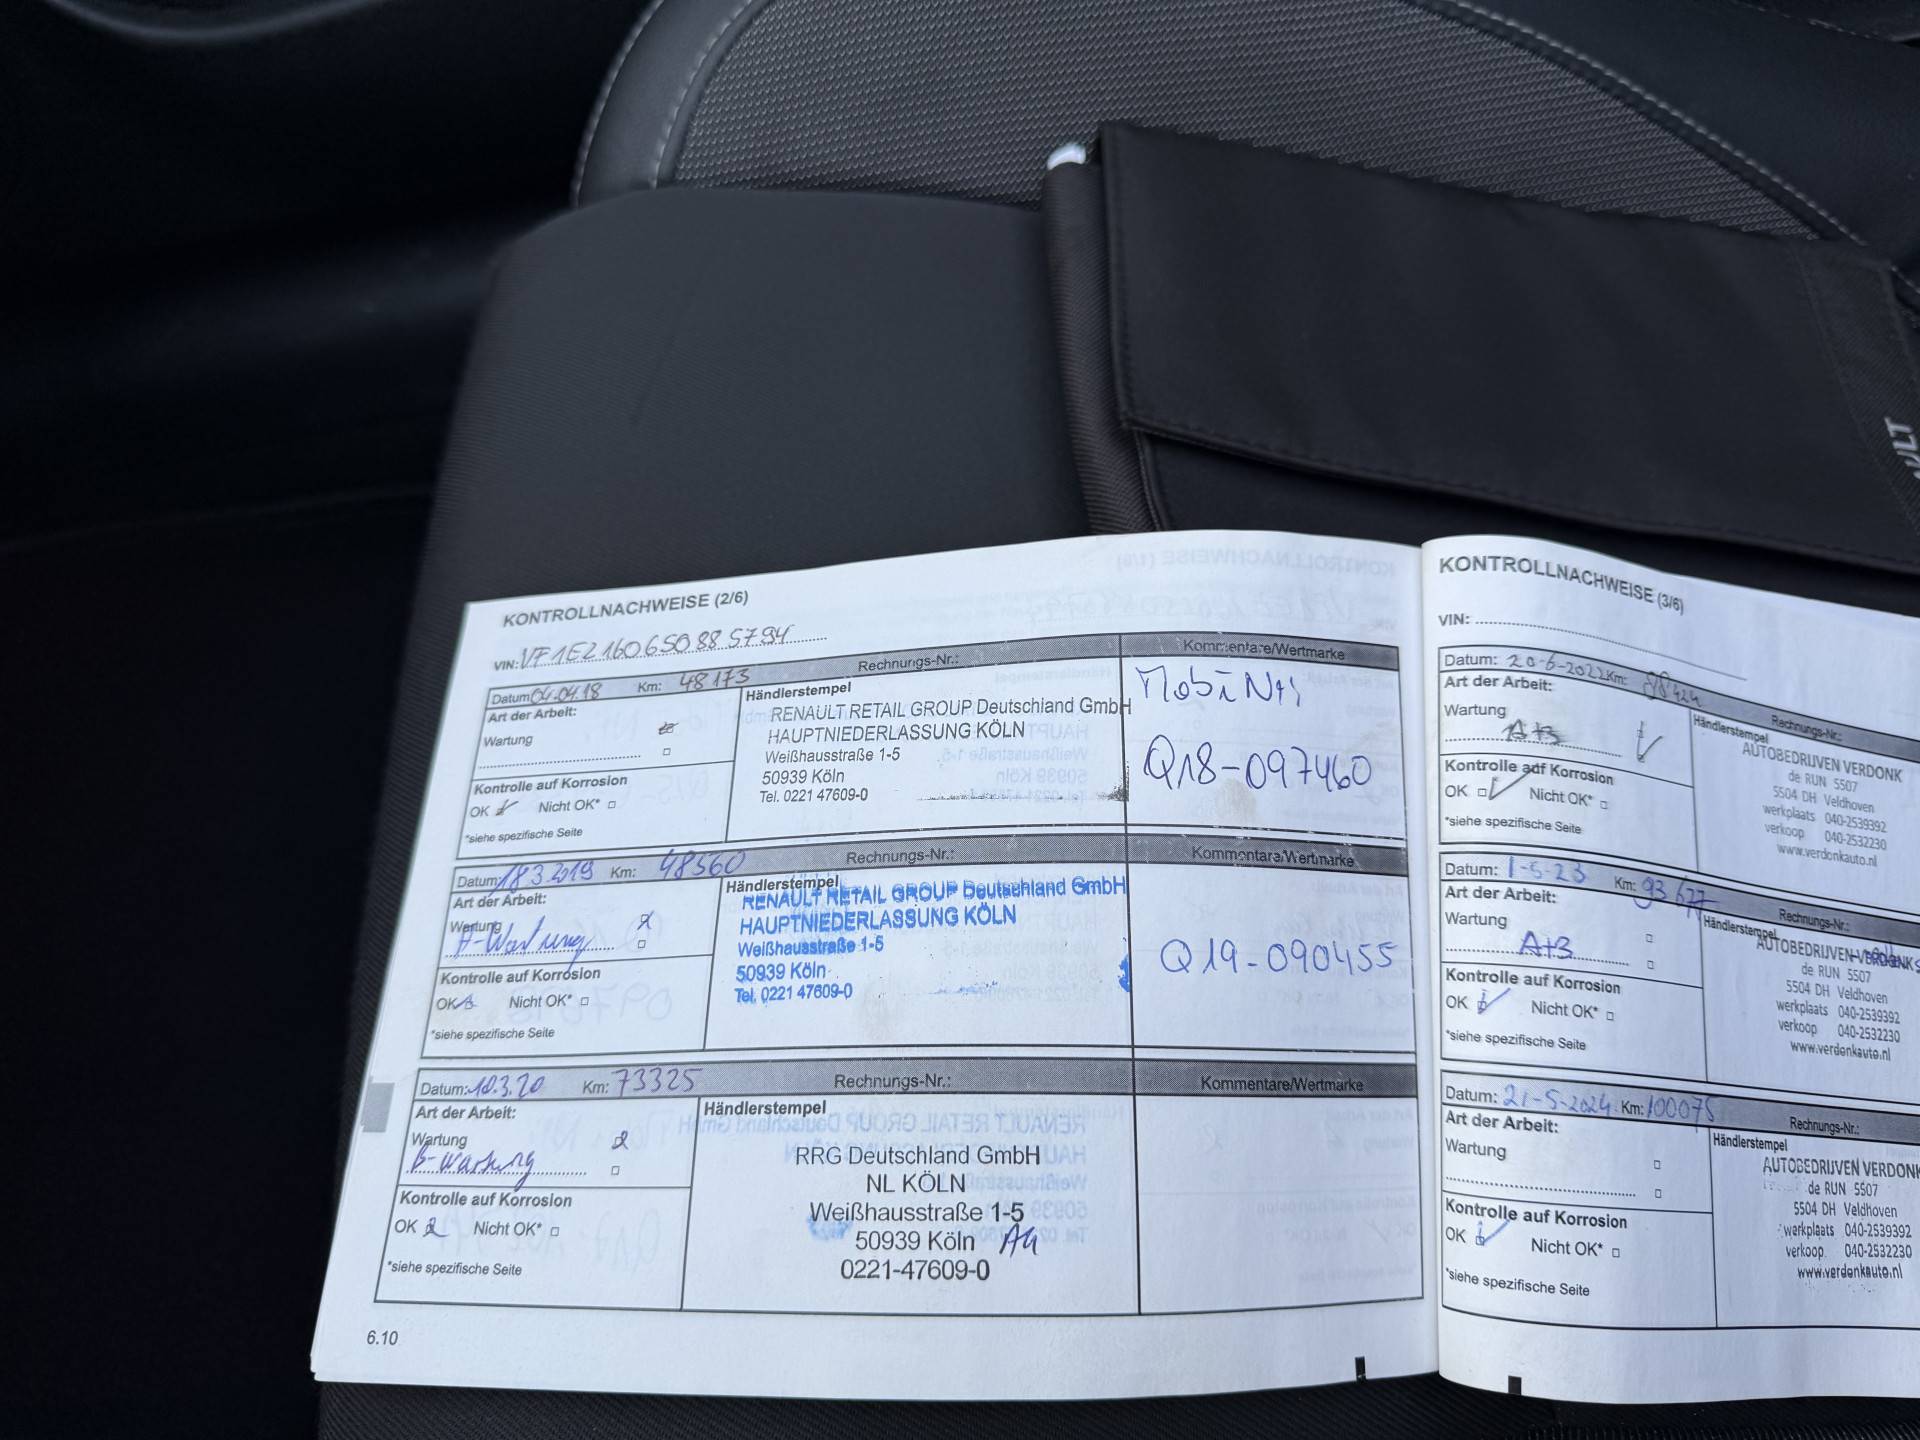 ULT
KONTROLLNACHWEISE (2/6)
VIN: VF1EZ160650885794
Datum: 04.04.18 Km: 48173 Rechnungs-Nr.: Kommentare/Wertmarke
Art der Arbeit:
Wartung
Kontrolle auf Korrosion
OK Nicht OK*
*siehe spezifische Seite
Händlerstempel
RENAULT RETAIL GROUP Deutschland GmbH
HAUPTNIEDERLASSUNG KÖLN
Weißhausstraße 1-5
50939 Köln
Tel. 0221 47609-0
Q18-097460
Datum: 18.3.2019 Km: 48560 Rechnungs-Nr.: Kommentare/Wertmarke
Art der Arbeit:
Wartung
A-Wartung
Kontrolle auf Korrosion
OK Nicht OK*
*siehe spezifische Seite
Händlerstempel
RENAULT RETAIL GROUP Deutschland GmbH
HAUPTNIEDERLASSUNG KÖLN
Weißhausstraße 1-5
50939 Köln
Tel. 0221 47609-0
Q19-090455
Datum: 10.3.20 Km: 73325 Rechnungs-Nr.: Kommentare/Wertmarke
Art der Arbeit:
Wartung
B-Wartung
Kontrolle auf Korrosion
OK Nicht OK*
*siehe spezifische Seite
Händlerstempel
RRG Deutschland GmbH
NL KÖLN
Weißhausstraße 1-5
50939 Köln
0221-47609-0
6.10
KONTROLLNACHWEISE (3/6)
VIN:
Datum: 20-6-2022 Km: 88424 Rechnungs-Nr.:
Art der Arbeit:
Wartung
A+B
Kontrolle auf Korrosion
OK Nicht OK*
*siehe spezifische Seite
Händlerstempel
AUTOBEDRIJVEN VERDONK
de RUN 5507
5504 DH Veldhoven
werkplaats 040-2539392
verkoop 040-2532230
www.verdonkauto.nl
Datum: 1-5-23 Km: 93677 Rechnungs-Nr.:
Art der Arbeit:
Wartung
A+B
Kontrolle auf Korrosion
OK Nicht OK*
*siehe spezifische Seite
Händlerstempel
AUTOBEDRIJVEN VERDONK
de RUN 5507
5504 DH Veldhoven
werkplaats 040-2539392
verkoop 040-2532230
www.verdonkauto.nl
Datum: 21-5-2024 Km: 100075 Rechnungs-Nr.:
Art der Arbeit:
Wartung
Kontrolle auf Korrosion
OK Nicht OK*
*siehe spezifische Seite
Händlerstempel
AUTOBEDRIJVEN VERDONK
de RUN 5507
5504 DH Veldhoven
werkplaats 040-2539392
verkoop 040-2532230
www.verdonkauto.nl